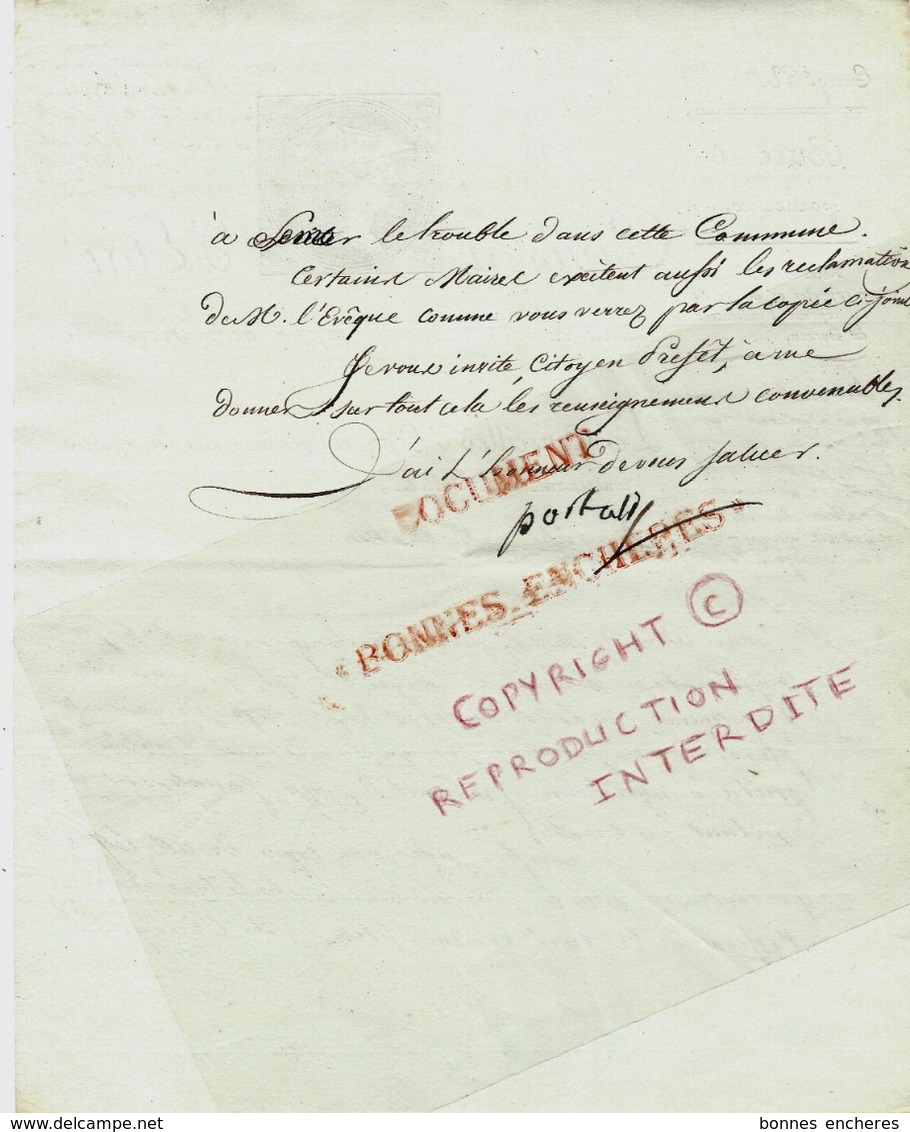 à semer le trouble dans cette Commune.
Certains Maires excitent aussi les reclamations
de M. l'Evêque comme vous verrez par la copie ci-jointe
Je vous invite, Citoyen Préfet, à me
donner sur tout cela les renseignemens convenables.
J'ai l'honneur de vous saluer.
portalis
DOCUMENT
"BONNES ENCHERES"
COPYRIGHT ©
REPRODUCTION
INTERDITE
bonnes encheres